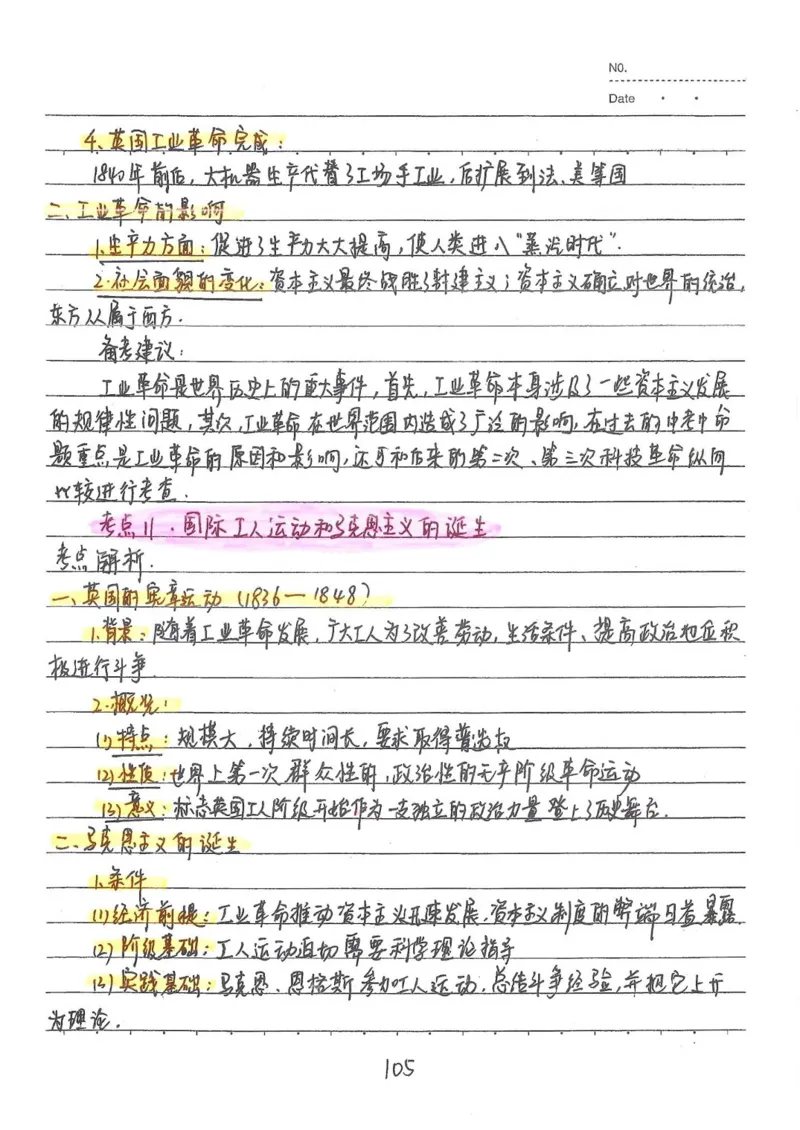 NO.
Date
4、英国工业革命完成：
1840年前后，大机器生产代替了工场手工业，后扩展到法、美等国
二、工业革命的影响
1.生产力方面：促进了生产力大大提高，使人类进入"蒸汽时代".
2.社会面貌的变化：资本主义最终战胜了封建主义；资本主义确立对世界的统治，
东方从属于西方.
备考建议：
工业革命是世界历史上的重大事件，首先，工业革命本身涉及了一些资本主义发展
的规律性问题，其次，工业革命在世界范围内造成了广泛的影响，在过去的中考中命
题重点是工业革命的原因和影响，还可和后来的第二次、第三次科技革命纵向
比较进行考查.
考点11.国际工人运动和马克思主义的诞生
考点解析.
一、英国的宪章运动（1836—1848）
1.背景：随着工业革命发展，广大工人为了改善劳动，生活条件、提高政治地位积
极进行斗争.
2.概况：
(1)特点：规模大，持续时间长，要求取得普选权
(2)性质：世界上第一次群众性的，政治性的无产阶级革命运动
(3)意义：标志英国工人阶级开始作为一支独立的政治力量登上了历史舞台.
二、马克思主义的诞生
1.条件
(1)经济前提：工业革命推动资本主义迅速发展，资本主义制度的弊端日益暴露
(2)阶级基础：工人运动迫切需要科学理论指导
(3)实践基础：马克思、恩格斯参加工人运动，总结斗争经验，并把它上升
为理论.
105